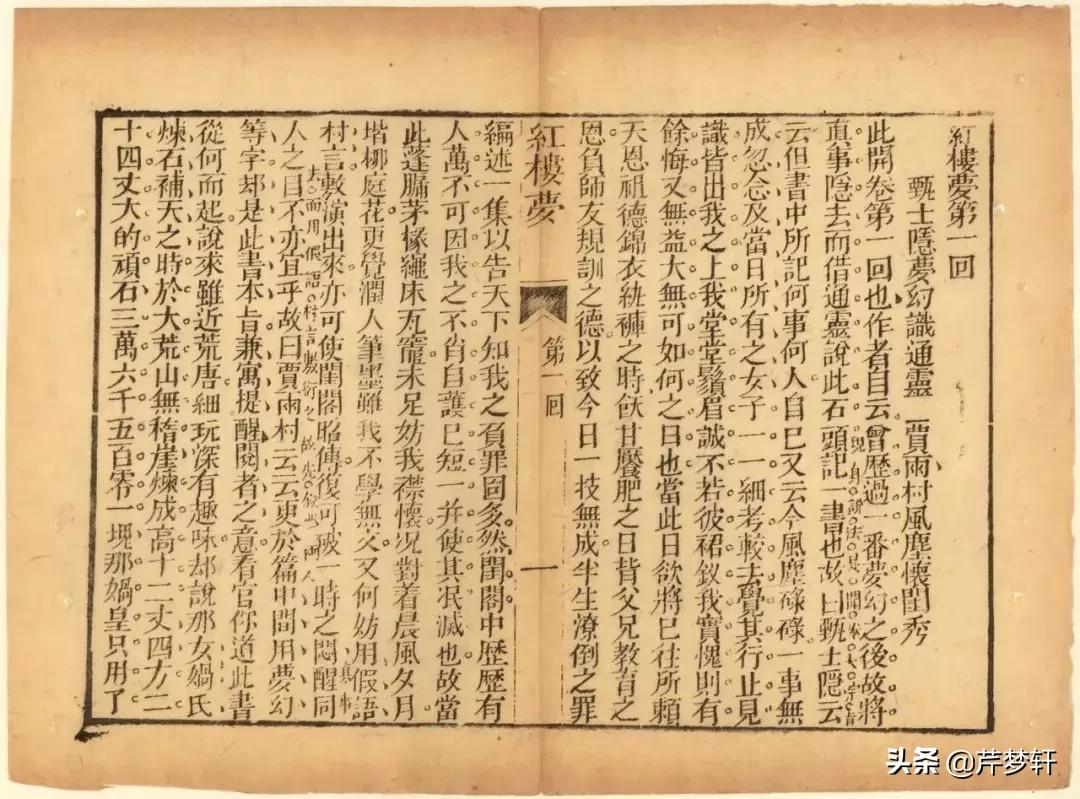 紅樓夢第一回
甄士隱夢幻識通靈　賈雨村風塵懷閨秀
此開卷第一回也作者自云曾歷過一番夢幻之後故將
真事隱去而借通靈說此石頭記一書也故曰甄士隱云
現身說法是開卷
云但書中所記何事何人自己又云今風塵碌碌一事無
成忽念及當日所有之女子一一細考較去覺其行止見
識皆出我之上我堂堂鬚眉誠不若彼裙釵我實愧則有
餘悔又無益大無可如何之日也當此日欲將已往所賴
天恩祖德錦衣紈褲之時飫甘饜肥之日背父兄教育之
恩負師友規訓之德以致今日一技無成半生潦倒之罪
紅樓夢　第一回　一
編述一集以告天下知我之負罪固多然閨閣中歷歷有
人萬不可因我之不肖自護己短一并使其泯滅也故當
此蓬牖茅椽繩床瓦竈未足妨我襟懷况對着晨風夕月
堦柳庭花更覺潤人筆墨雖我不學無文又何妨用假語
真事
村言敷演出來亦可使閨閣昭傳復可破一時之悶醒同
去而用假語村言敷衍之故先敍此兩人
人之目不亦宜乎故曰賈雨村云云更於篇中間用夢幻
等字却是此書本旨兼寓提醒閱者之意看官你道此書
從何而起說來雖近荒唐細玩深有趣味却說那女媧氏
煉石補天之時於大荒山無稽崖煉成高十二丈四方二
十四丈大的頑石三萬六千五百零一塊那媧皇只用了
头条 @芹梦轩